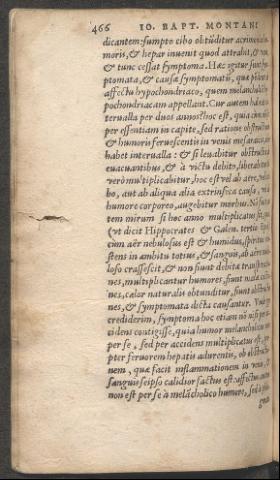 466 IO. BAPT. MONTANI
dicantem: sumpto cibo obtūditur acrimonia
moris, & hepar inuenit quod attrahit, & non
& tunc cessat symptoma. Hæc igitur sunt sym
ptomata, & causæ symptomatū, quæ
affectu hypochondriaco, quem melancholia
pochondriacam appellant. Cur autem hab in
terualla per duos annos: hoc est, quia
per essentiam in capite, sed ratione obstructi
& humoris feruescentis in venis mesaraicis,
habet interualla: & si leuabitur obstructio
euacuantibus, & à victu debito, liberabitur
verò multiplicabitur, hoc est vel ab aëre,
bo, aut ab aliqua alia extrinseca causa,
humore corporeo, augebitur morbus. Nō
tem mirum si hoc anno multiplicatus sit,
(vt dicit Hippocrates & Galen. tertio
cùm aër nebulosus est & humidus, spiritus
stens in ambitu totius, & sanguis, ab aëre
loso crassescit, & non fiunt debita
nes, multiplicantur humores, fiunt
nes, calor naturalis obtunditur, fiunt obstru
nes, & symptomata dicta causantur.
crediderim, symptoma hoc etiam nō nisi per
cidens contigisse, quia humor melancholicus
per se, sed per accidens multiplicatus est,
pter feruorem hepatis adurentis, ob obstru
nem, quæ facit inflammationem in venis,
sanguis seipso calidior factus est: affectus
non est per se à melācholico humore, sed à